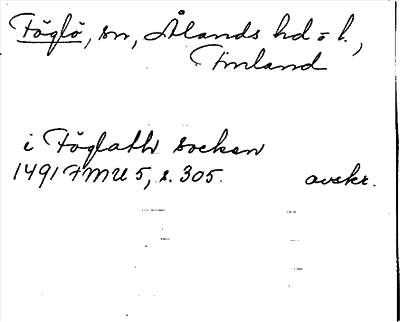 Föglö, sn, Ålands hd o l.,
Finland
i Föglath socken
1491 FMU 5, s. 305. avskr.